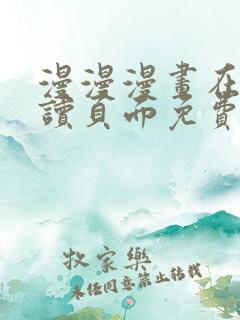 漫漫漫畫在
讀頁面免費
牧家樂
未任同意禁止转载